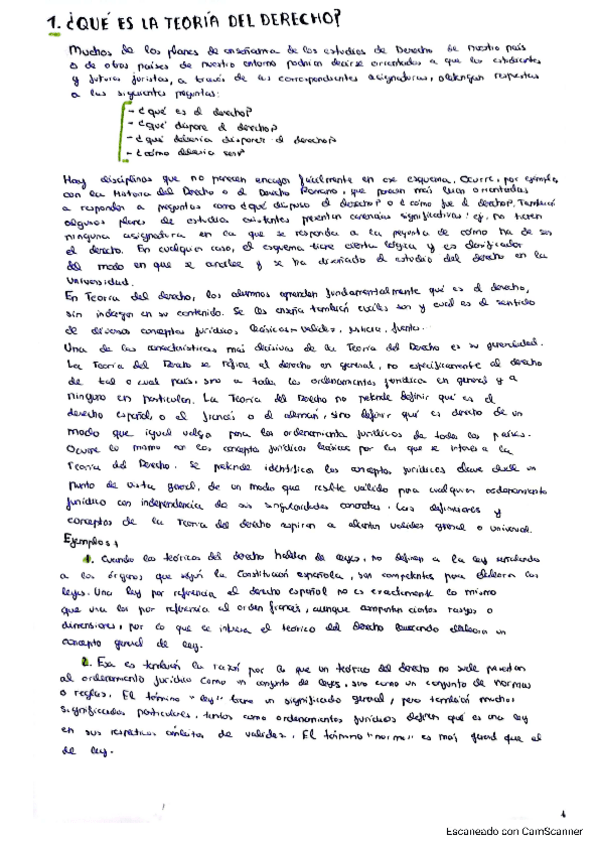 1. ¿QUÉ ES LA TEORÍA DEL DERECHO?
Muchos de los planes de enseñanza de los estudios de Derecho de nuestro país
o de otros países de nuestro entorno podrían decirse orientados a que los estudiantes
y futuros juristas, a través de las correspondientes asignaturas, obtengan respuestas
a las siguientes preguntas:
- ¿qué es el derecho?
- ¿qué dispone el derecho?
- ¿qué debería disponer el derecho?
- ¿cómo debería ser?
Hay disciplinas que no parecen encajar fácilmente en ese esquema. Ocurre, por ejemplo,
con la Historia del Derecho o el Derecho Romano, que parecen más bien orientadas
a responder a preguntas como ¿qué dispuso el derecho? o ¿cómo fue el derecho?. También
algunos planes de estudio existentes presentan carencias significativas: ej. no tienen
ninguna asignatura en la que se responda a la pregunta de cómo ha de ser
el derecho. En cualquier caso, el esquema tiene cierta lógica y es clarificador
del modo en que se analice y se ha diseñado el estudio del derecho en la
Universidad.
En Teoría del derecho, los alumnos aprenden fundamentalmente qué es el derecho,
sin indagar en su contenido. Se les enseña también cuáles son y cual es el sentido
de diversos conceptos jurídicos básicos: validez, fuente.
Una de las características más decisivas de la Teoría del Derecho es su generalidad.
La Teoría del Derecho se refiere al derecho en general, no específicamente al derecho
de tal o cual país, sino a todos los ordenamientos jurídicos en general y a
ninguno en particular. La Teoría del Derecho no pretende definir qué es el
derecho español, o el francés o el alemán, sino definir qué es derecho de un
modo que igual valga para los ordenamientos jurídicos de todos los países.
Ocurre lo mismo con los conceptos jurídicos básicos por los que se interesa la
Teoría del Derecho. Se pretende identificar los conceptos jurídicos clave desde un
punto de vista general, de un modo que resulte válido para cualquier ordenamiento
jurídico con independencia de sus singularidades concretas. Las definiciones y
conceptos de la Teoría del derecho aspiran a alcanzar validez general o universal.
Ejemplos:
1. Cuando los teóricos del derecho hablan de leyes, no definen a la ley señalando
a los órganos que según la Constitución española, son competentes para elaborar las
leyes. Una ley por referencia al derecho español no es exactamente lo mismo
que una ley por referencia al orden francés, aunque comparten ciertos rasgos o
dimensiones, por lo que se interesa el teórico del Derecho buscando elaborar un
concepto general de ley.
2. Esa es también la razón por la que un teórico del derecho no suele presentar
al ordenamiento jurídico como un conjunto de leyes, sino como un conjunto de normas
o reglas. El término "ley" tiene un significado general, pero también muchos
significados particulares, tantos como ordenamientos jurídicos definen qué es una ley
en sus respectivos ámbitos de validez. El término "norma" es más general que el
de ley.
1
Escaneado con CamScanner